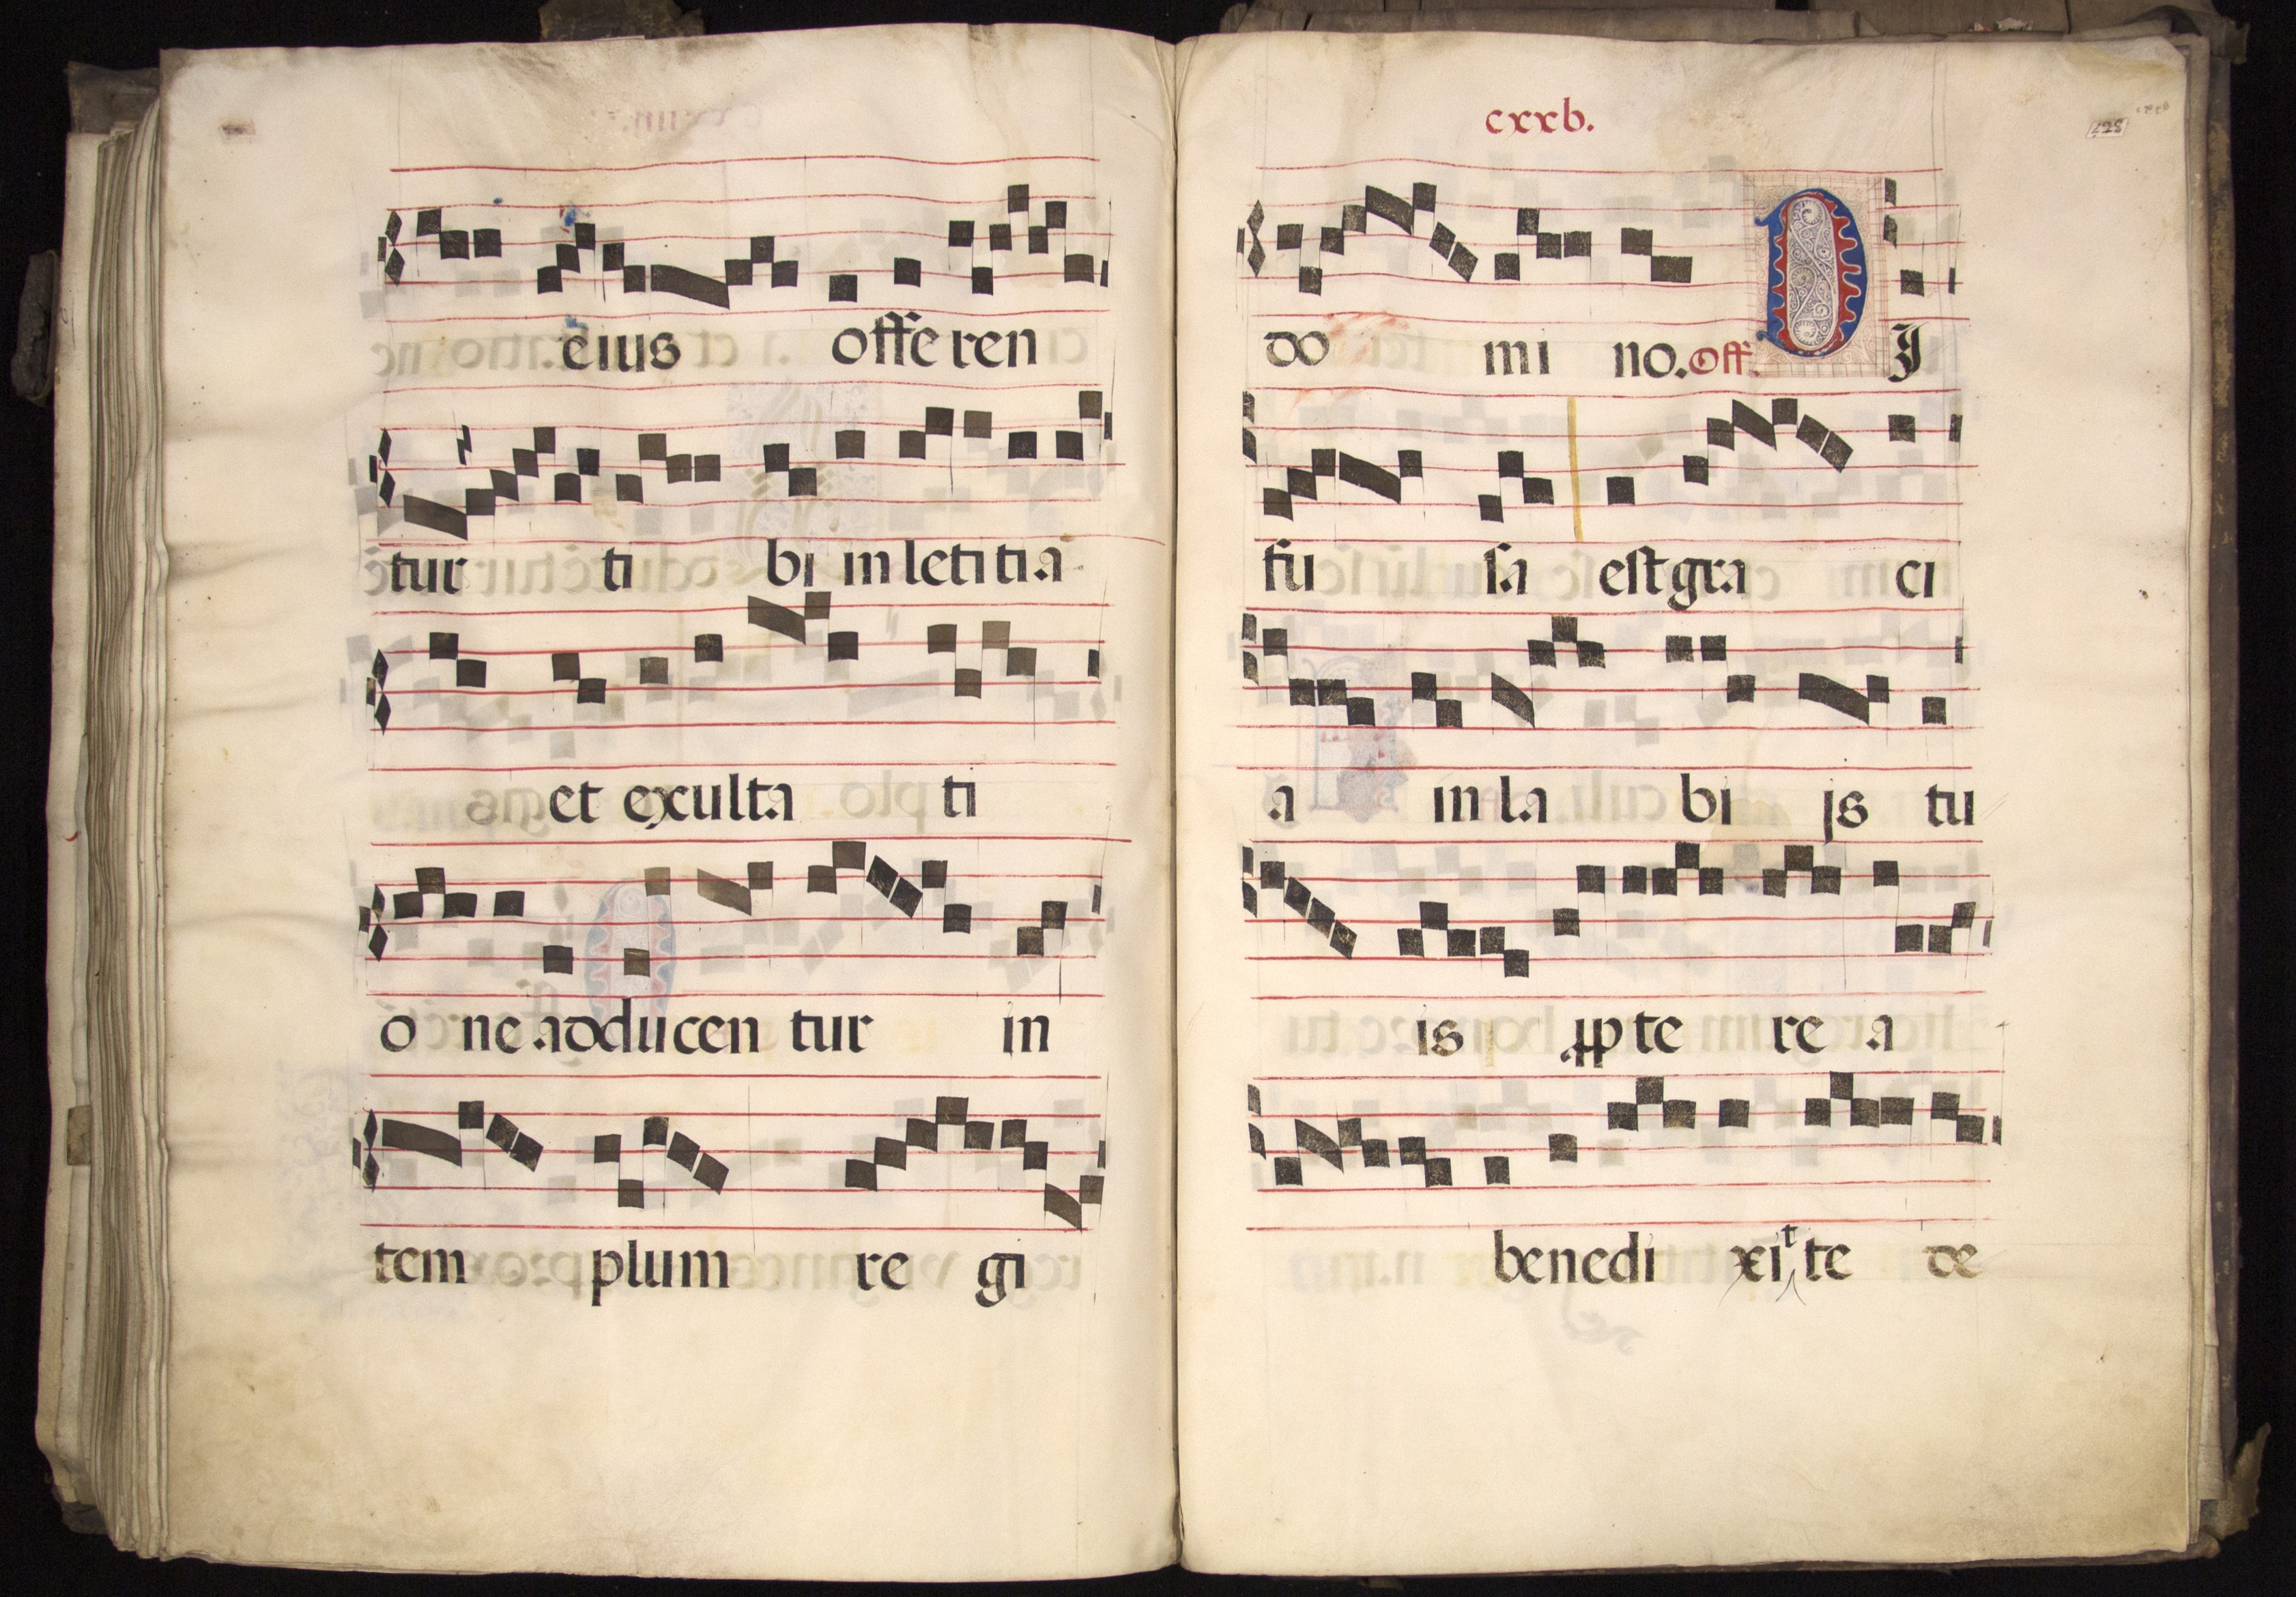 eius offeren
tur ti bi in letitia
et exulta ti
o ne adducen tur in
tem plum re gi
cxxv.
do mi no. Off. D I
fu sa est gra ci
a in la bi is tu
is ꝓpte re a
benedi xi^t te de